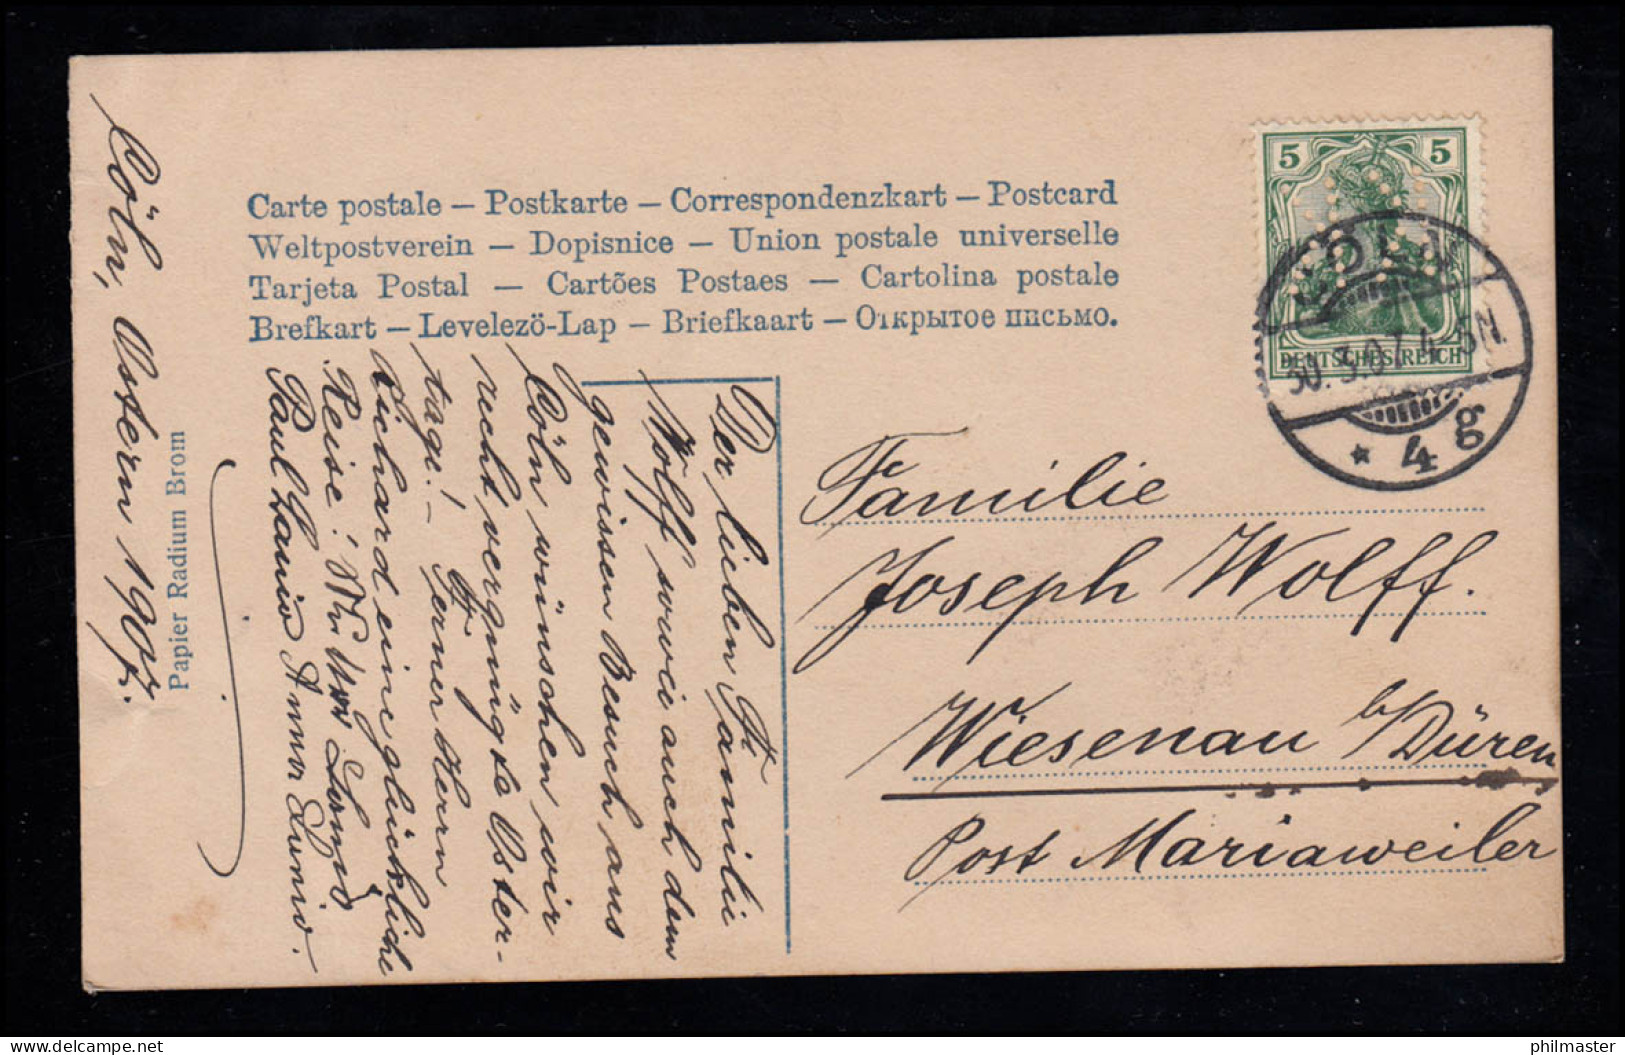 Carte postale – Postkarte – Correspondenzkart – Postcard
Weltpostverein – Dopisnice – Union postale universelle
Tarjeta Postal – Cartões Postaes – Cartolina postale
Brefkart – Levelezö-Lap – Briefkaart – Открытое письмо.
5 5
DEUTSCHES REICH
CÖLN
30.3.07.4-5N.
* 4g
Familie
Joseph Wolff.
Wiesenau b/Düren
Post Mariaweiler
Cöln, Ostern 1907.
Papier Radium Brom
Der lieben Familie
Wolff sowie auch dem
gewissen Besuch aus
Cöln wünschen wir
recht vergnügte Oster-
tage! – Ferner Herrn
Lichard eine glückliche
Reise!
Paul Anna